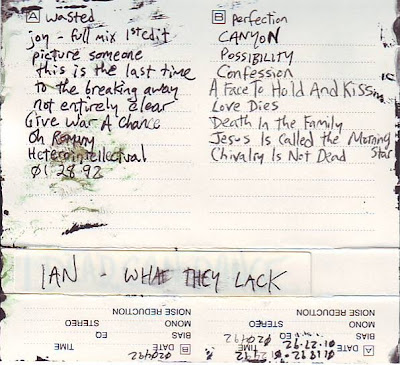 A wasted
joy - full mix 1st edit
picture someone
this is the last time
to the breaking away
not entirely clear
Give War A Chance
Oh Romeny
Heterointellectual
01 28 92
B Perfection
CANYON
POSSIBILITY
Confession
A Face To Hold And Kiss
Love Dies
Death In the Family
Jesus Is Called the Morning
Star
Chivalry Is Not Dead
IAN - WHAT THEY LACK
NOISE REDUCTION
MONO STEREO
BIAS EQ
B DATE TIME
020492
NOISE REDUCTION
MONO STEREO
BIAS EQ
A DATE TIME
01-27-92